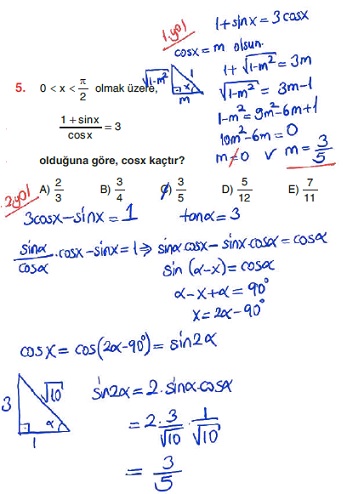 1.yol
1+sinx=3cosx
cosx=m olsun.
1+√1-m² = 3m
√1-m² = 3m-1
1-m² = 9m²-6m+1
10m²-6m=0
m≠0 ∨ m=3/5
√1-m²
1
x
m
5. 0 < x < π/2 olmak üzere,
(1+sinx)/cosx = 3
olduğuna göre, cosx kaçtır?
A) 2/3 B) 3/4 C) 3/5 D) 5/12 E) 7/11
2.yol
3cosx-sinx=1 tanα=3
sinα/cosα · cosx-sinx=1 ⇒ sinα cosx - sinx cosα = cosα
sin(α-x)=cosα
α-x+α=90°
x=2α-90°
cosx=cos(2α-90°)=sin2α
3
√10
α
1
sin2α=2·sinα·cosα
=2·3/√10·1/√10
=3/5